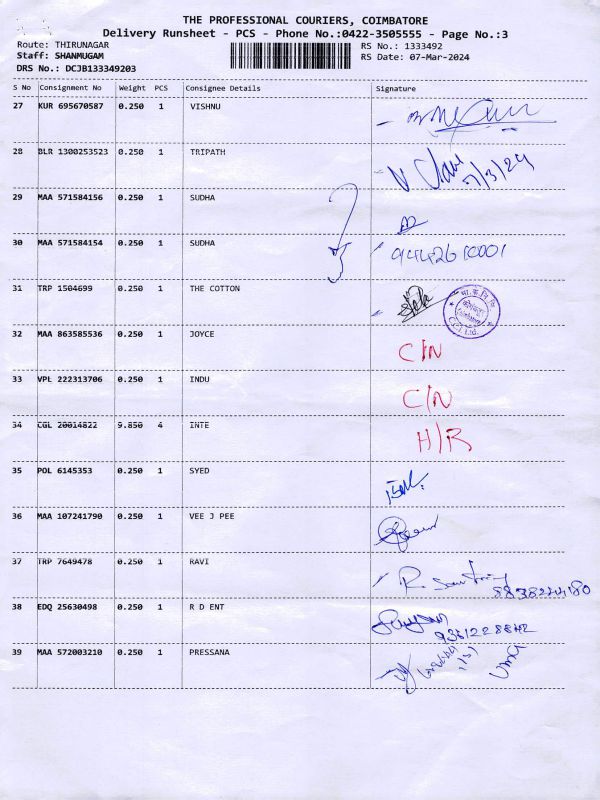 THE PROFESSIONAL COURIERS, COIMBATORE
Delivery Runsheet - PCS - Phone No.:0422-3505555 - Page No.:3
Route: THIRUNAGAR RS No.: 1333492
Staff: SHANMUGAM RS Date: 07-Mar-2024
DRS No.: DCJB133349203
S No Consignment No Weight PCS Consignee Details Signature
27 KUR 695670587 0.250 1 VISHNU
28 BLR 1300253523 0.250 1 TRIPATH
7/3/24
29 MAA 571584156 0.250 1 SUDHA
30 MAA 571584154 0.250 1 SUDHA
31 TRP 1504699 0.250 1 THE COTTON
C.C.I. Ltd.
32 MAA 863585536 0.250 1 JOYCE
C/N
33 VPL 222313706 0.250 1 INDU
C/N
34 CGL 20014822 9.850 4 INTE
H/R
35 POL 6145353 0.250 1 SYED
36 MAA 107241790 0.250 1 VEE J PEE
37 TRP 7649478 0.250 1 RAVI
R
38 EDQ 25630498 0.250 1 R D ENT
39 MAA 572003210 0.250 1 PRESSANA